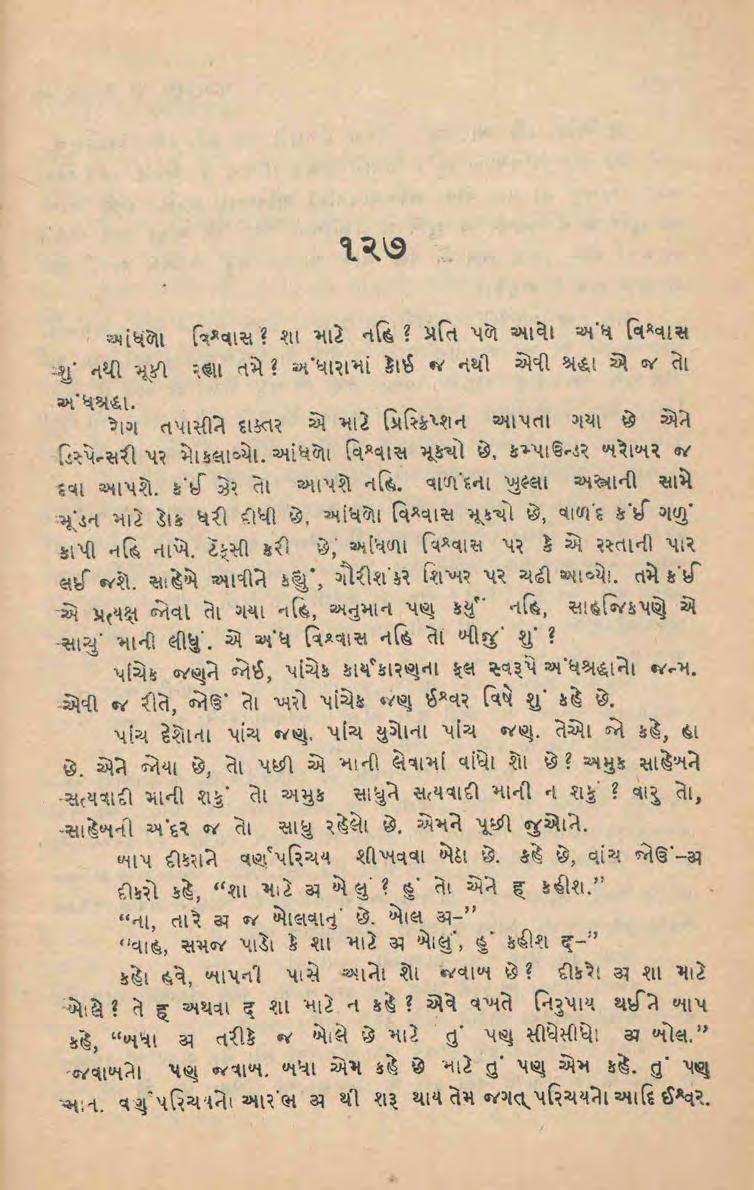 ૧૨૭
આંધળો વિશ્વાસ? શા માટે નહિ? પ્રતિ પળે આવો અંધ વિશ્વાસ
શું નથી મૂકી રહ્યા તમે? અંધારામાં કોઈ જ નથી એવી શ્રદ્ધા એ જ તો
અંધશ્રદ્ધા.
રોગ તપાસીને દાક્તર એ માટે પ્રિસ્ક્રિપ્શન આપતા ગયા છે એને
ડિસ્પેન્સરી પર મોકલાવ્યો. આંધળો વિશ્વાસ મૂક્યો છે, કમ્પાઉન્ડર બરોબર જ
દવા આપશે. કંઈ ઝેર તો આપશે નહિ. વાળંદના ખુલ્લા અસ્ત્રાની સામે
મૂંડન માટે ડોક ધરી દીધી છે, આંધળો વિશ્વાસ મૂક્યો છે, વાળંદ કંઈ ગળું
કાપી નહિ નાખે. ટેક્સી કરી છે, આંધળા વિશ્વાસ પર કે એ રસ્તાની પાર
લઈ જશે. સાહેબે આવીને કહ્યું, ગૌરીશંકર શિખર પર ચઢી આવ્યો. તમે કંઈ
એ પ્રત્યક્ષ જોવા તો ગયા નહિ, અનુમાન પણ કર્યું નહિ, સાહજિકપણે એ
સાચું માની લીધું. એ અંધ વિશ્વાસ નહિ તો બીજું શું?
પાંચેક જણને જોઈ, પાંચેક કાર્યકારણના ફલ સ્વરૂપે અંધશ્રદ્ધાનો જન્મ.
એવી જ રીતે, જોઉં તો ખરો પાંચેક જણ ઈશ્વર વિષે શું કહે છે.
પાંચ દેશોના પાંચ જણ. પાંચ યુગોના પાંચ જણ. તેઓ જો કહે, હા
છે. એને જોયા છે, તો પછી એ માની લેવામાં વાંધો શો છે? અમુક સાહેબને
સત્યવાદી માની શકું તો અમુક સાધુને સત્યવાદી માની ન શકું? વારુ તો,
સાહેબની અંદર જ તો સાધુ રહેલો છે. એમને પૂછી જુઓને.
બાપ દીકરાને વર્ણપરિચય શીખવવા બેઠા છે. કહે છે, વાંચ જોઉં-અ
દીકરો કહે, “શા માટે અ બોલું? હું તો એને हૢ કહીશ.”
“ના, તારે અ જ બોલવાનું છે. બોલ અ-”
“વાહ, સમજ પાડો કે શા માટે અ બોલું, હું કહીશ द-”
કહો હવે, બાપની પાસે આનો શો જવાબ છે? દીકરો અ શા માટે
બોલે? તે ह અથવા द શા માટે ન કહે? એવે વખતે નિરુપાય થઈને બાપ
કહે, “બધા અ તરીકે જ બોલે છે માટે તું પણ સીધેસીધો અ બોલ.”
જવાબનો પણ જવાબ. બધા એમ કહે છે માટે તું પણ એમ કહે. તું પણ
માન. વર્ણપરિચયનો આરંભ અ થી શરૂ થાય તેમ જગત્ પરિચયનો આદિ ઈશ્વર.